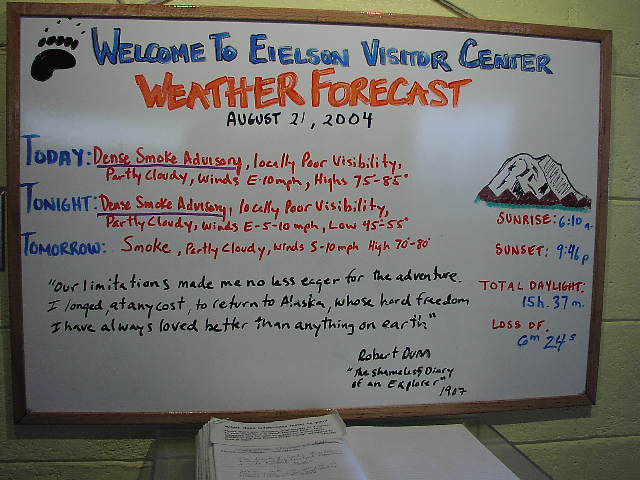 WELCOME TO EIELSON VISITOR CENTER
WEATHER FORECAST
AUGUST 21, 2004
TODAY: Dense Smoke Advisory, locally Poor Visibility,
Partly Cloudy, Winds E-10mph, Highs 75-85°
TONIGHT: Dense Smoke Advisory, locally Poor Visibility,
Partly Cloudy, Winds E-5-10mph, Low 45-55°
TOMORROW: Smoke, Partly Cloudy, Winds 5-10mph High 70°-80°
"Our limitations made me no less eager for the adventure.
I longed, at any cost, to return to Alaska, whose hard freedom
I have always loved better than anything on earth"
Robert Dunn
"The Shameless Diary
of an Explorer"
1907
SUNRISE: 6:10 a.
SUNSET: 9:46 p
TOTAL DAYLIGHT:
15h. 37m.
LOSS OF:
6m 24s